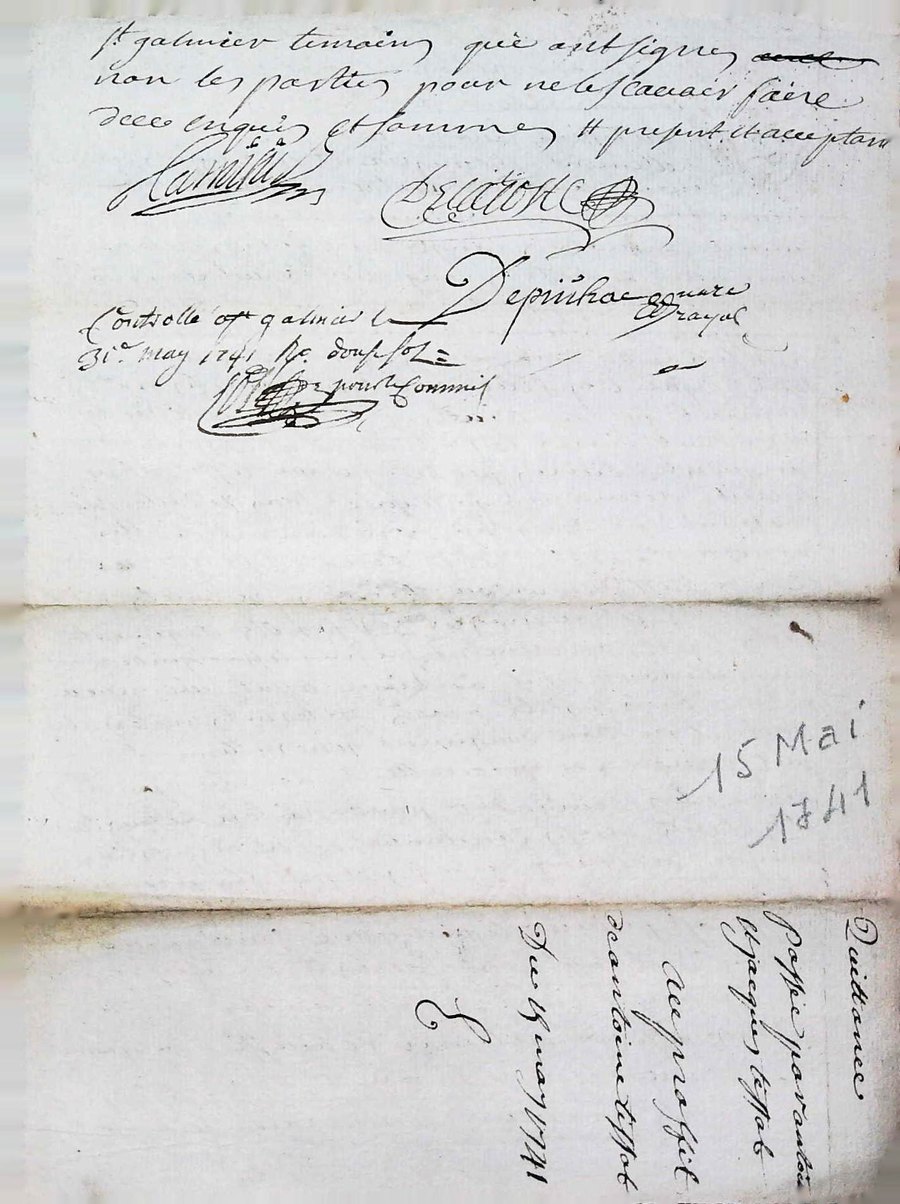 st galmier temoins qui ont signes
non les parties pour ne le scavoir faire
de ce enquis et sommes et present et acceptant
Delarose
Depuihac
Controllé a st galmier le
31e may 1741 Rc. douse sols
pour le Commis
15 Mai
1741
Quittance
passée par antoine
et jacques tissot
au proffit
de antoine tissot
Du 15 may 1741